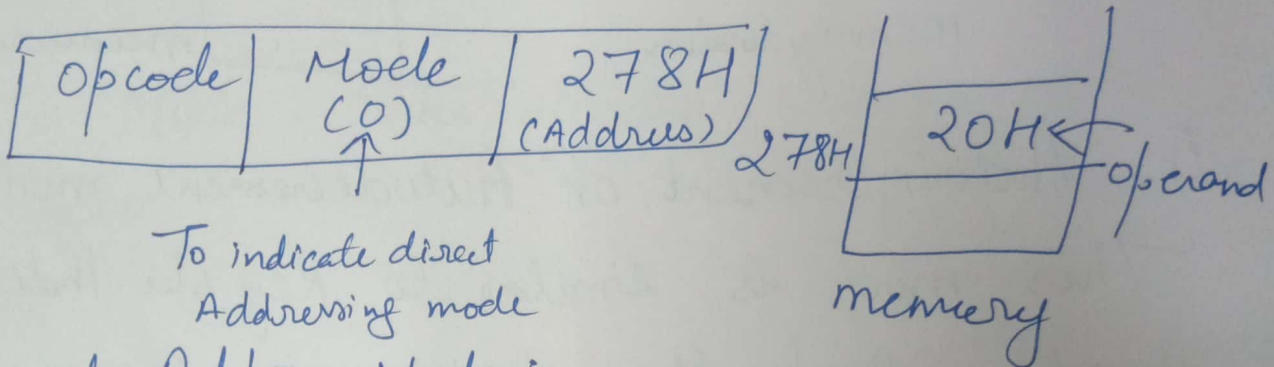 Opcode Mode 278H
(0) (Address)
278H 20H
operand
To indicate direct
Addressing mode
memory